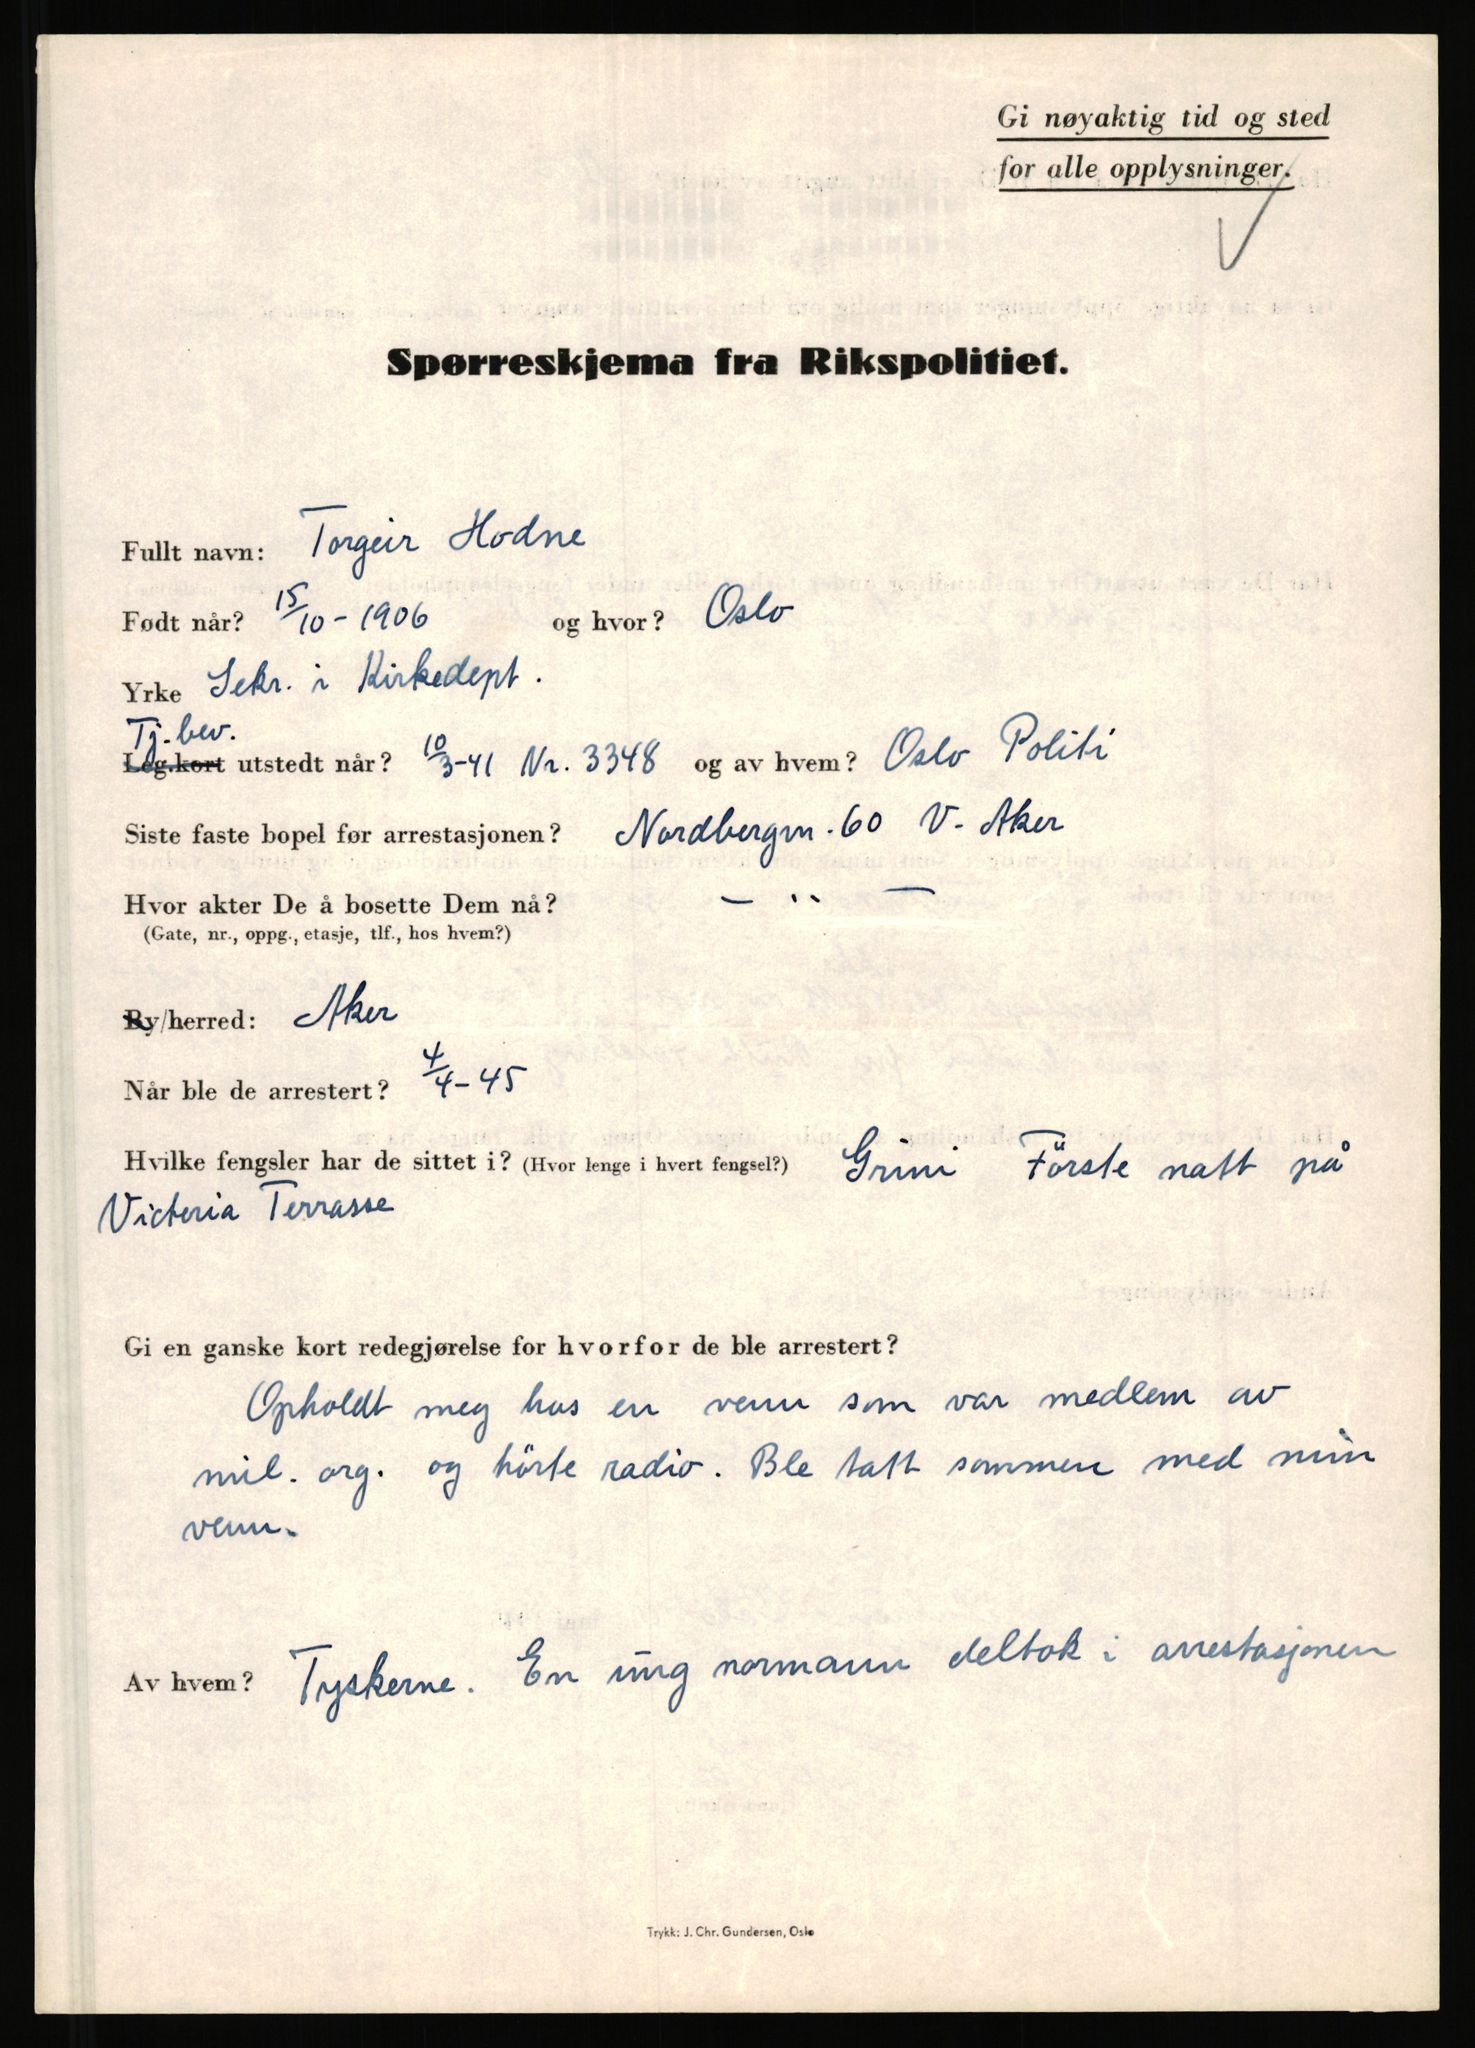 Gi nøyaktig tid og sted
for alle opplysninger.
Spørreskjema fra Rikspolitiet.
Fullt navn: Torgeir Hodne
Født når? 15/10-1906 og hvor? Oslo
Yrke Sekr. i Kirkedept.
Tj. bev.
Leg.kort utstedt når? 10/3-41 Nr. 3348 og av hvem? Oslo Politi
Siste faste bopel før arrestasjonen? Nordbergvn. 60 V. Aker
Hvor akter De å bosette Dem nå? — ·· —
(Gate, nr., oppg., etasje, tlf., hos hvem?)
By/herred: Aker
Når ble de arrestert? 4/4-45
Hvilke fengsler har de sittet i? (Hvor lenge i hvert fengsel?) Grini Förste natt på
Victoria Terrasse
Gi en ganske kort redegjørelse for hvorfor de ble arrestert?
Opholdt meg hos en venn som var medlem av
mil. org. og hörte radio. Ble tatt sammen med min
venn.
Av hvem? Tyskerne. En ung normann deltok i arrestasjonen
Trykk: J. Chr. Gundersen, Oslo